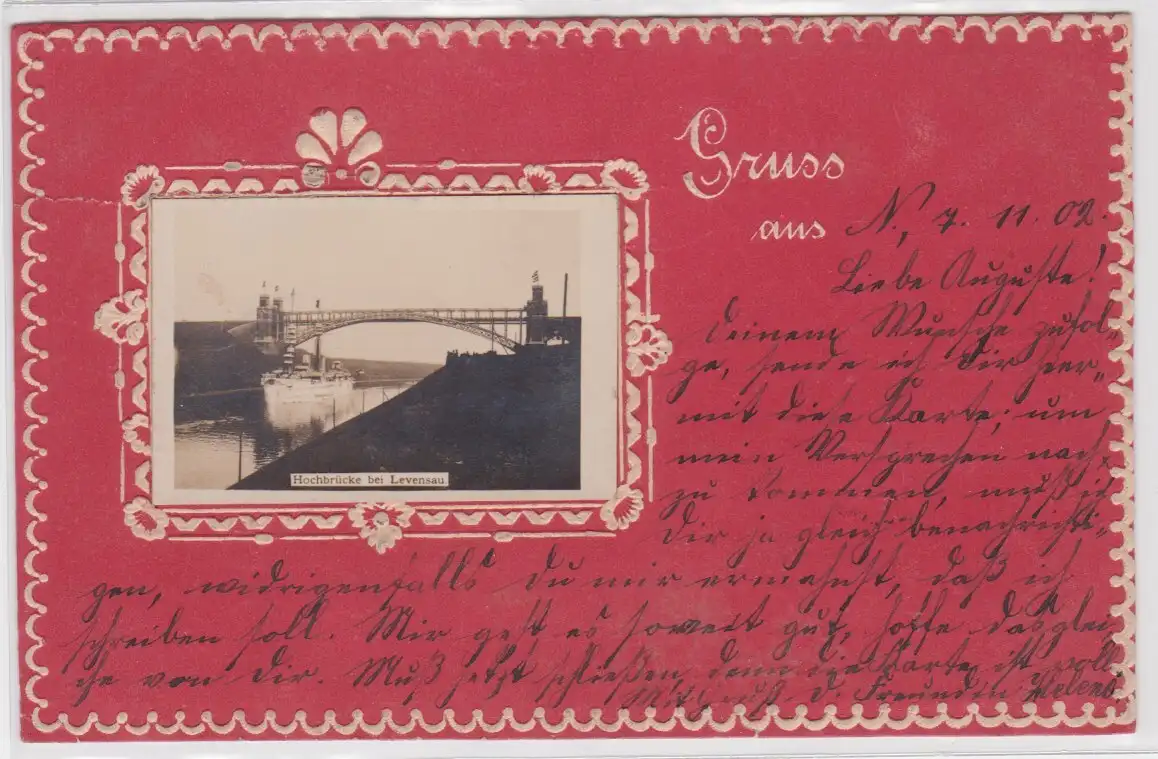 Gruss
aus
N., 7. 11. 02.
Liebe Auguste!
Deinem Wunsche zufol-
ge, sende ich Dir hier-
mit diese Karte; um
mein Versprechen nach-
zu kommen, muß ich
Dir ja gleich benachrichti-
gen, widrigenfalls Du mir ermahnst, daß ich
schreiben soll. Mir geht es soweit gut, hoffe dasglei-
che von Dir. Muß jetzt schließen, denn die Karte ist voll
Mit Gruß D. Freundin Helene.
Hochbrücke bei Levensau